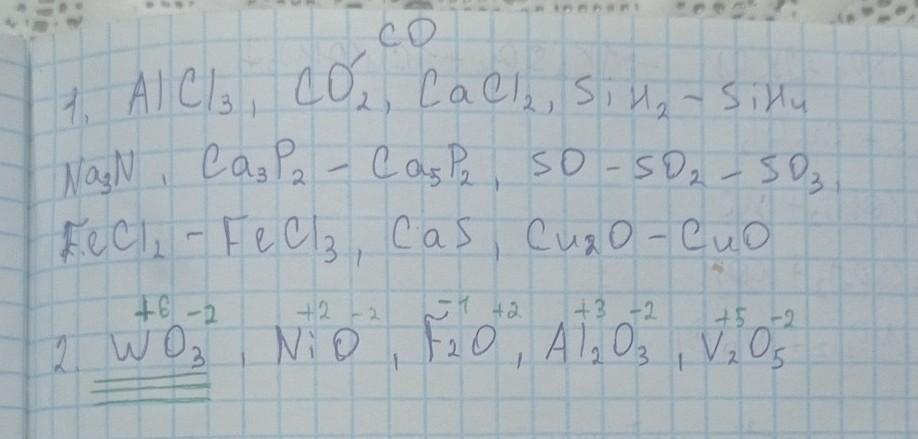 CO
1. AlCl₃, CO₂, CaCl₂, SiH₂ – SiH₄
Na₃N, Ca₃P₂ – Ca₅P₂, SO – SO₂ – SO₃,
FeCl₂ – FeCl₃, CaS, Cu₂O – CuO
+6 -2 +2 -2 -1 +2 +3 -2 +5 -2
2. WO₃, NiO, F₂O, Al₂O₃, V₂O₅